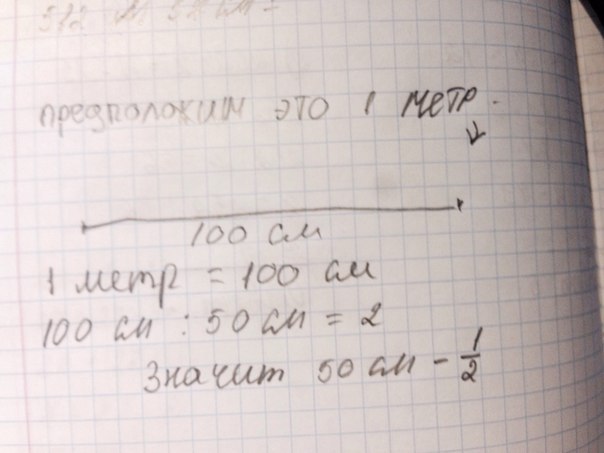 предположим это 1 метр.
100 см
1 метр = 100 см
100 см : 50 см = 2
Значит 50 см - 1/2